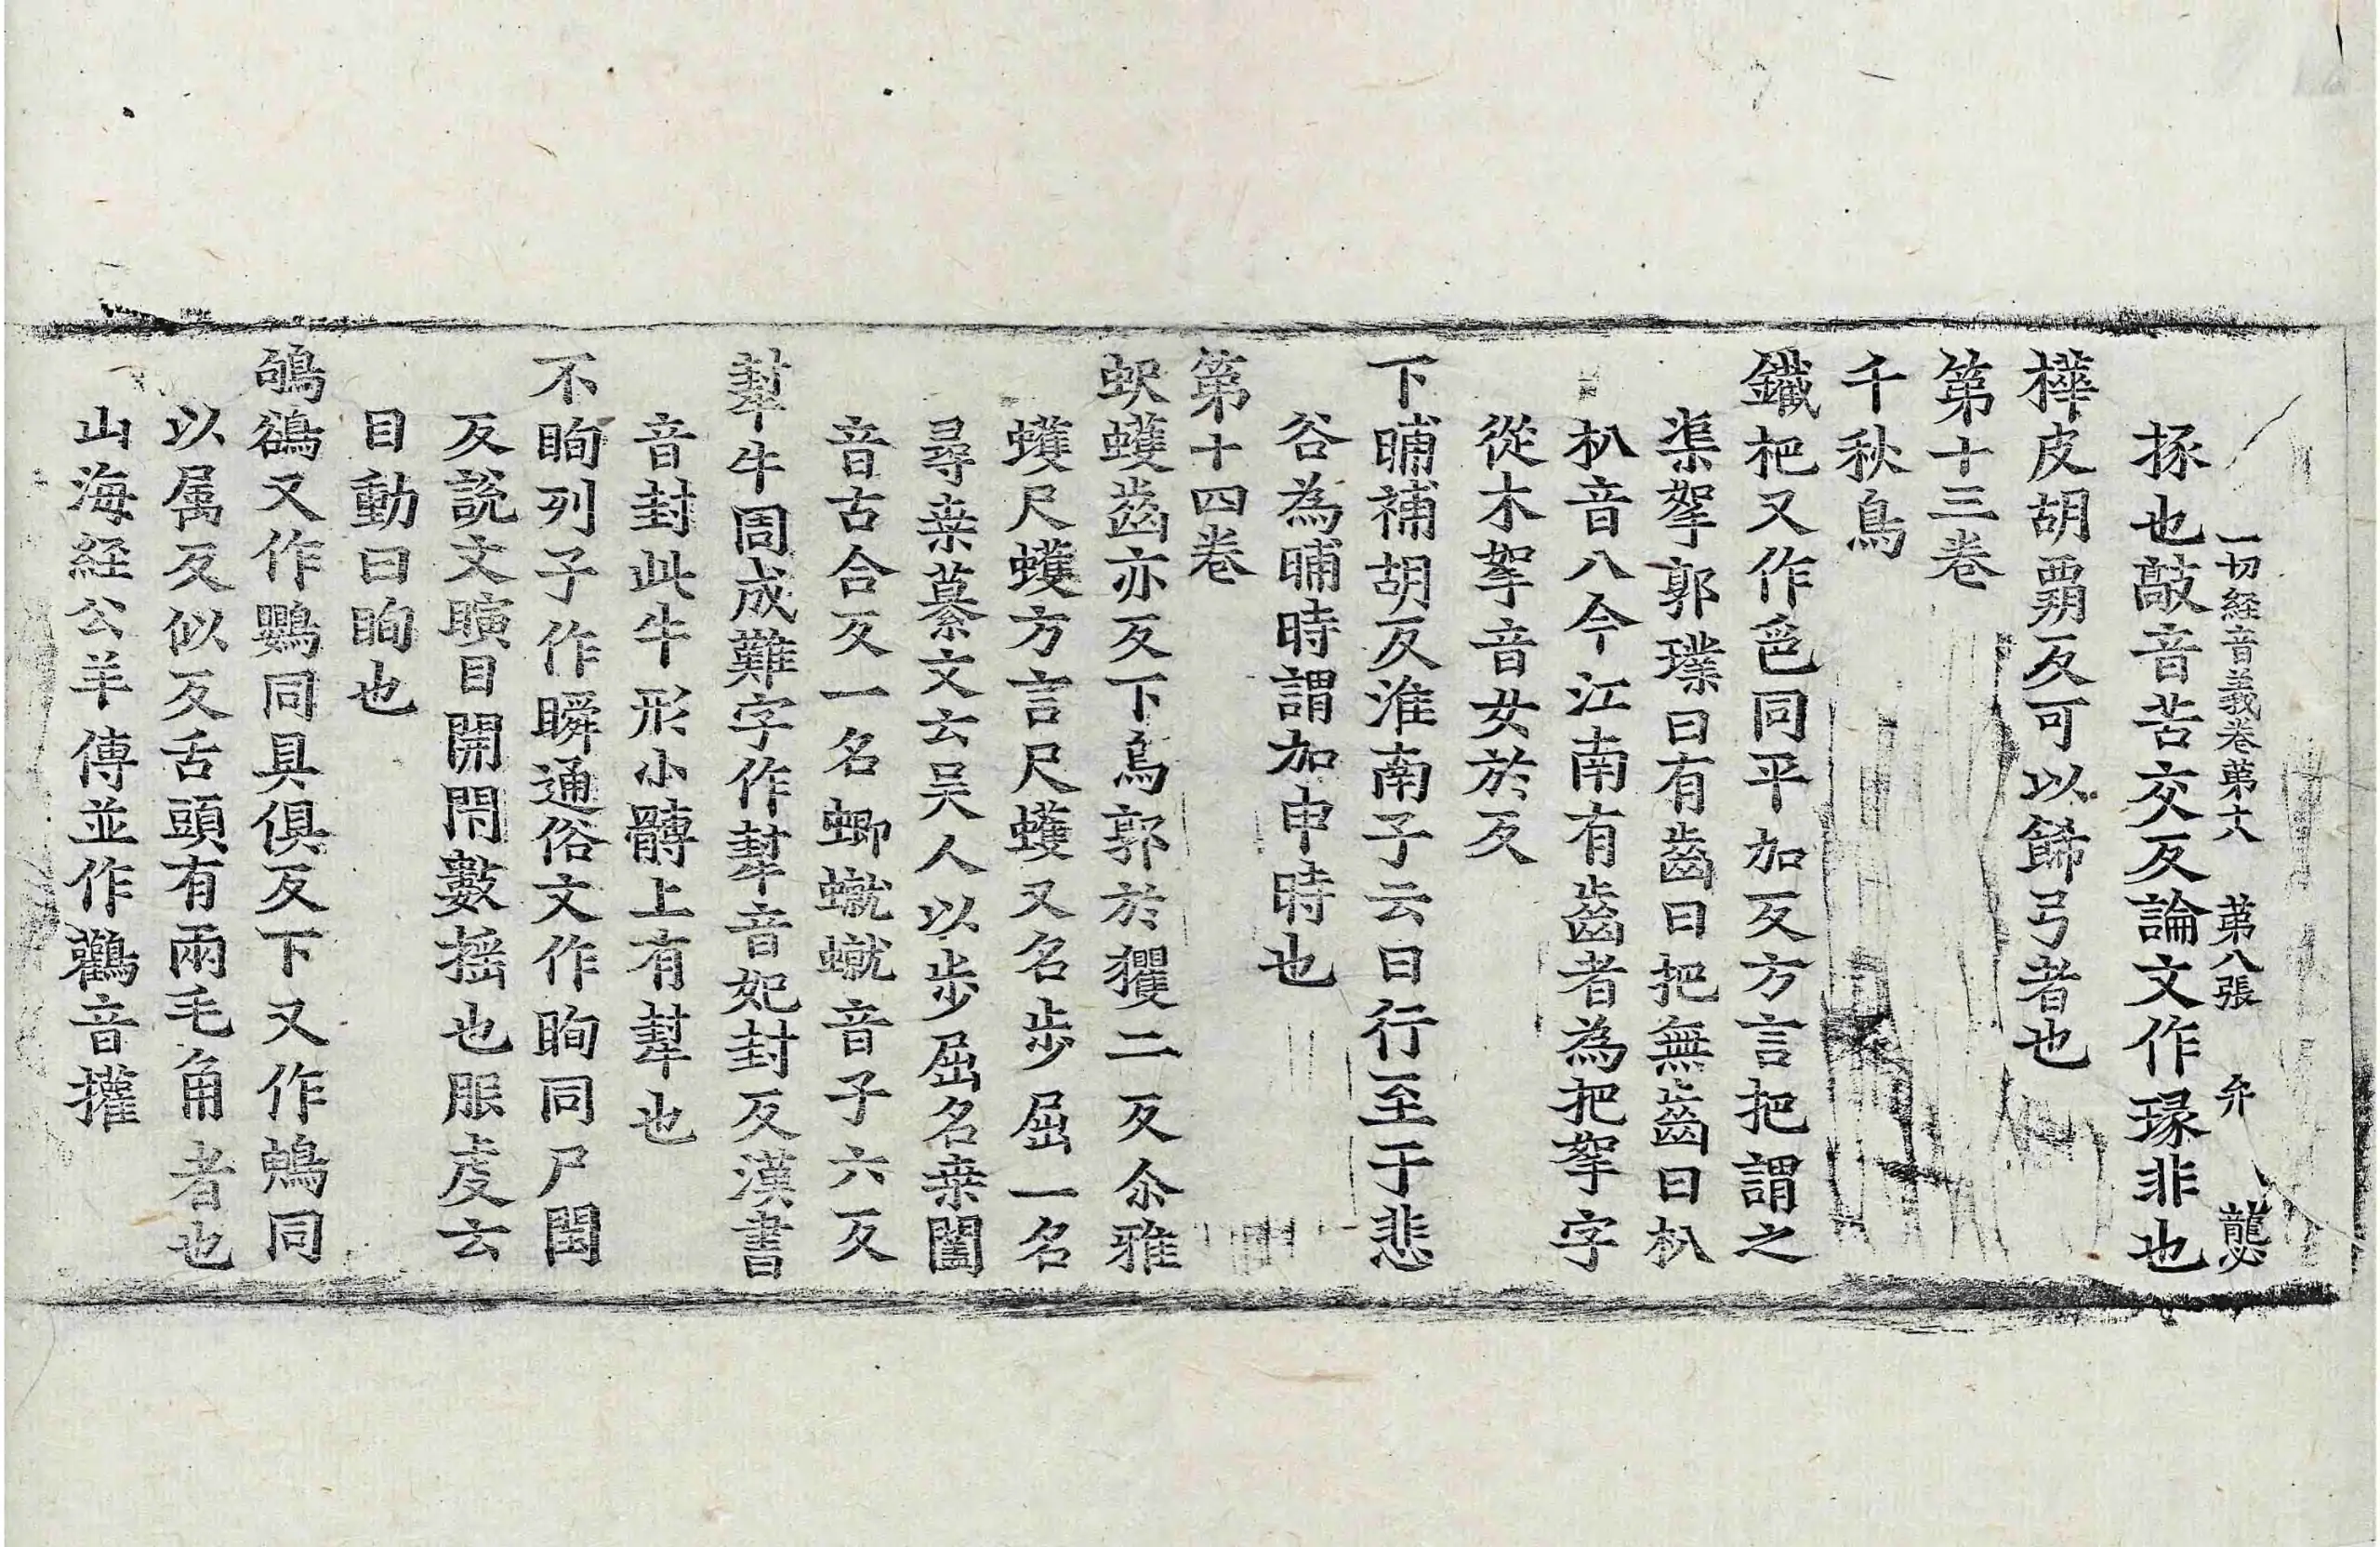 一切経音義卷第十八 第八張 弁 襲
㧻也敲音苦交反論文作琢非也
樺皮胡霸反可以飾弓者也
第十三卷
千秋鳥
鐵杷又作䶕同平加反方言把謂之
渠挐郭璞曰有齒曰把無齒曰朳
朳音八今江南有齒者為把挐字
從木挐音女於反
下晡補胡反淮南子云日行至于悲
谷為晡時謂加申時也
第十四卷
蚇蠖齒亦反下烏郭於玃二反尒雅
蠖尺蠖方言尺蠖又名步屈一名
尋桒纂文云吴人以步屈名桒闔
音古合反一名蝍䗯䗯音子六反
犎牛周成難字作犎音妃封反漢書
音封此牛形小髆上有犎也
不眴列子作瞬通俗文作眴同尸閏
反說文瞚目開閇數摇也服虔云
目動曰眴也
鴝鵒又作鸜同具俱反下又作䳑同
以属反似反舌頭有兩毛角者也
山海経公羊傳並作鸛音㩲